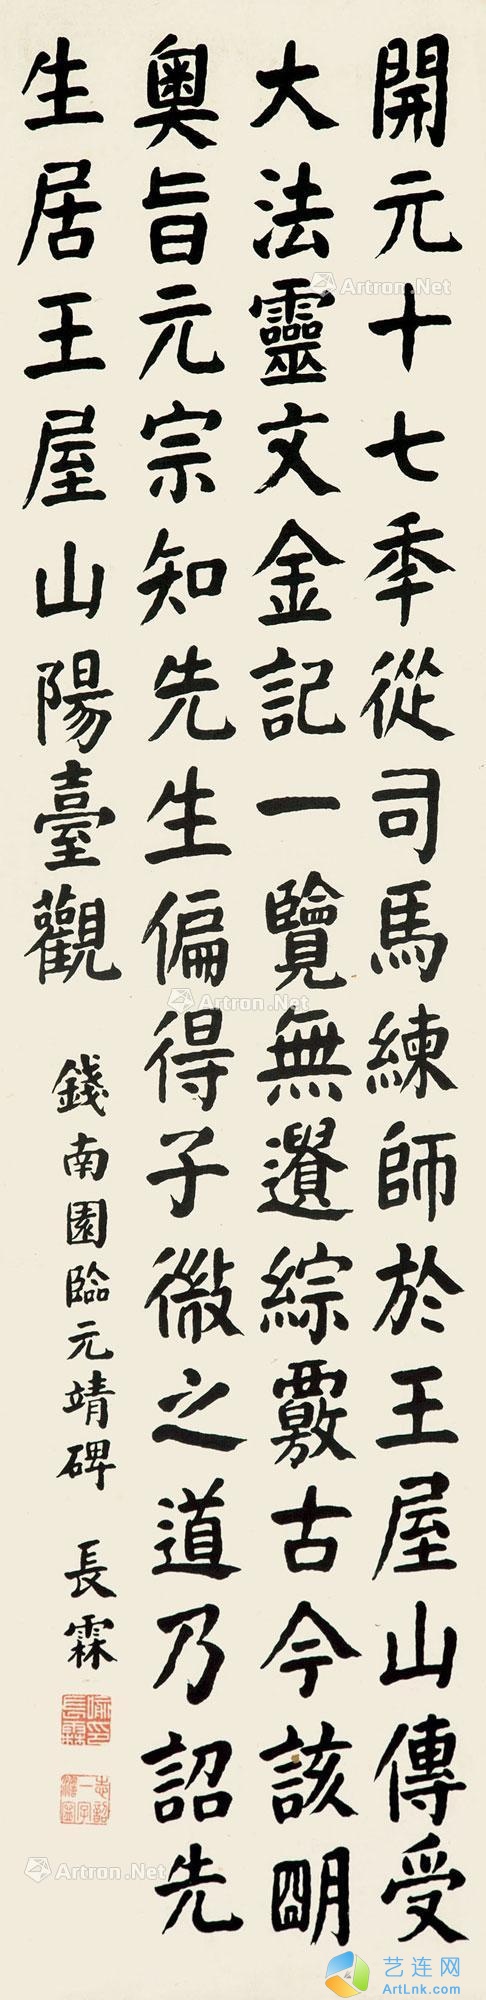 開元十七秊從司馬練師於王屋山傳受
大法靈文金記一覽無遺綜覈古今該明
奧旨元宗知先生偏得子微之道乃詔先
生居王屋山陽臺觀
錢南園臨元靖碑 長霖
喻長霖印
志韶一字潛盦
Artron.Net
Artron.Net
Artron.Net
艺连网
ArtLnk.com